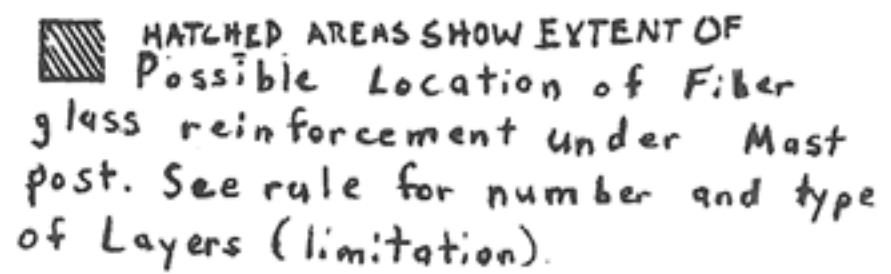 HATCHED AREAS SHOW EXTENT OF
Possible Location of Fiber
glass reinforcement under Mast
post. See rule for number and type
of Layers (limitation).